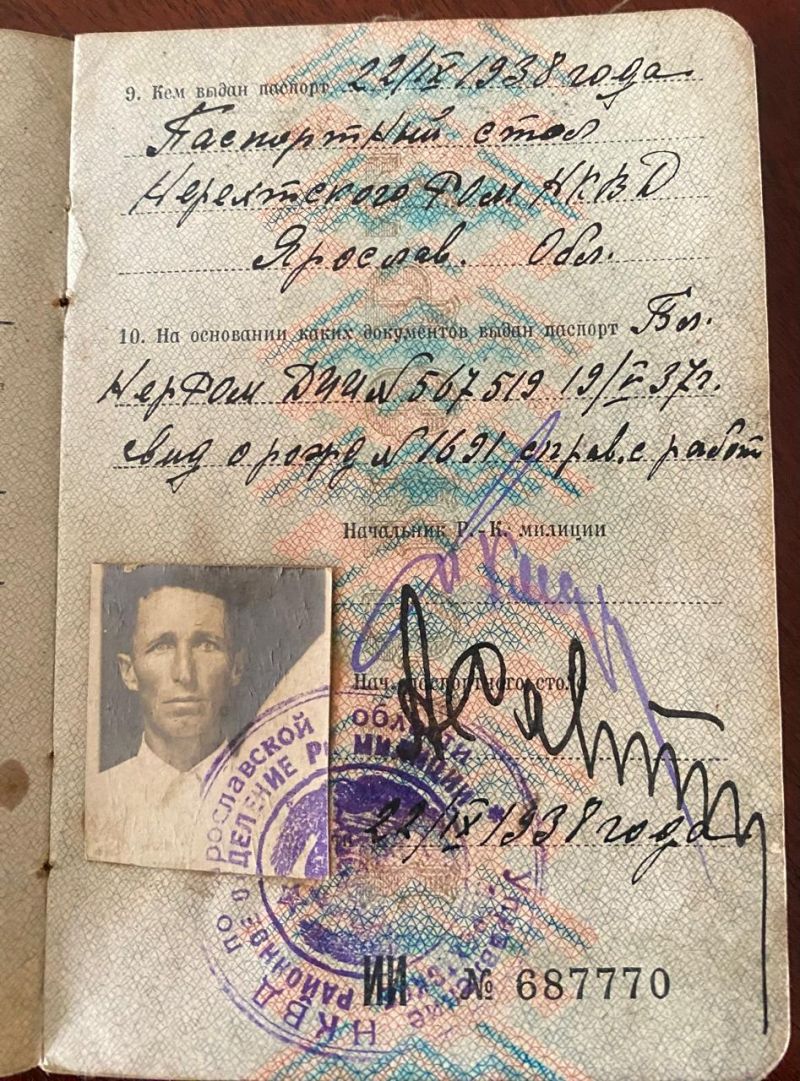 9. Кем выдан паспорт 22/IX 1938 года
Паспортный стол
Нерехтского РОМ НКВД
Ярослав. Обл.
10. На основании каких документов выдан паспорт Бл.
НерРОМ № 567519 19/V 37г.
свид о рожд № 1691 справ. с работ
Начальник Р.-К. милиции
Нач. паспортного стола
22/IX 1938 года
НКВД по Ярославской области
РАЙОННОЕ ОТДЕЛЕНИЕ МИЛИЦИИ
Управление
№ 687770